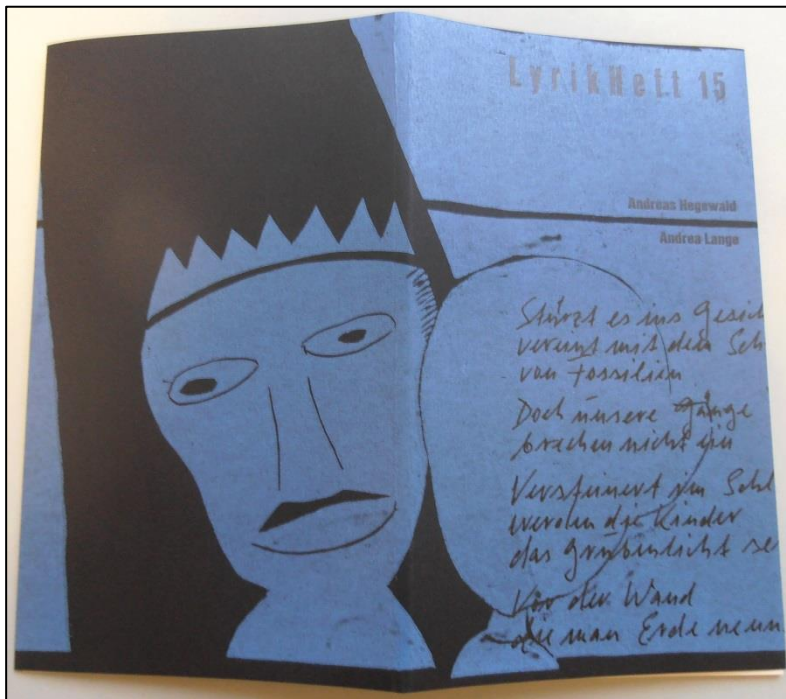 LyrikHeft 15
Andreas Hegewald
Andrea Lange
Stürzt es ins Gesich
vereint mit dem Sch
von Fossilien
Doch unsere Gänge
brechen nicht ein
Versteinert im Schl
werden die Kinder
das Grubenlicht se
Vor der Wand
die man Erde nenn